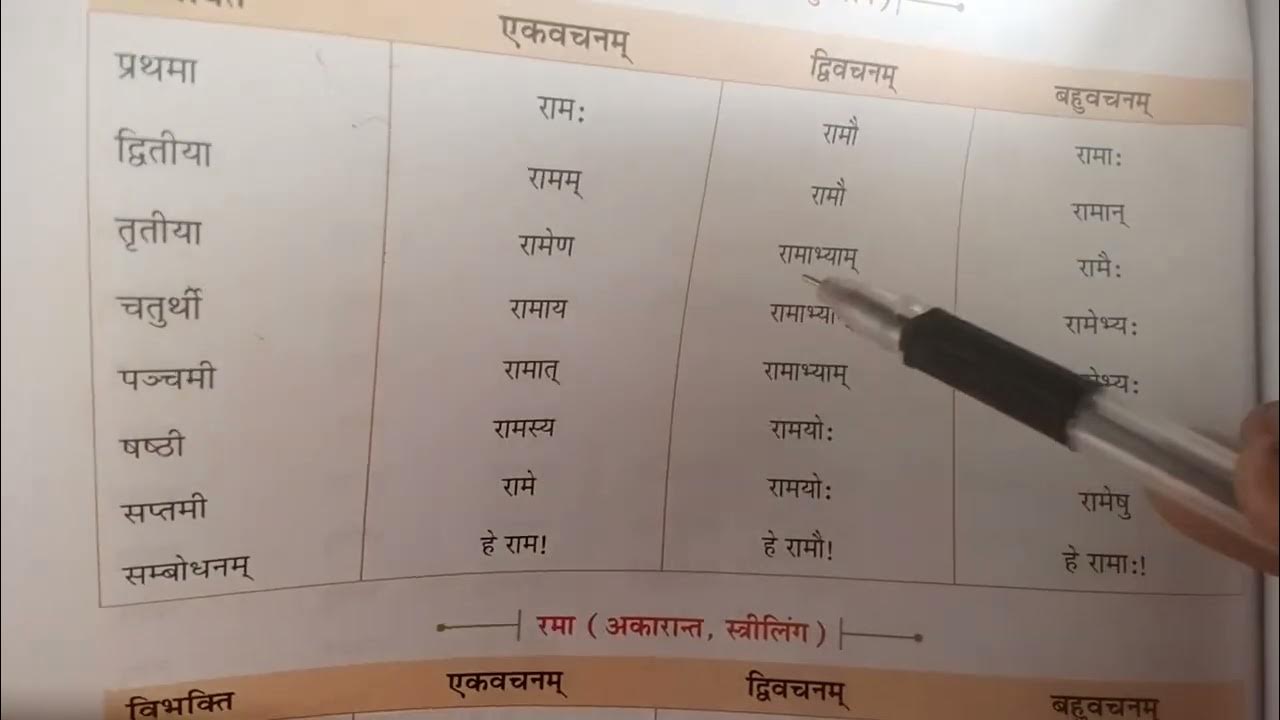 एकवचनम् द्विवचनम् बहुवचनम्
प्रथमा रामः रामौ रामाः
द्वितीया रामम् रामौ रामान्
तृतीया रामेण रामाभ्याम् रामैः
चतुर्थी रामाय रामेभ्यः
पञ्चमी रामात् रामाभ्याम्
षष्ठी रामस्य रामयोः
सप्तमी रामे रामयोः रामेषु
सम्बोधनम् हे राम! हे रामौ! हे रामाः!
रमा ( अकारान्त, स्त्रीलिंग )
विभक्ति एकवचनम् द्विवचनम् बहुवचनम्